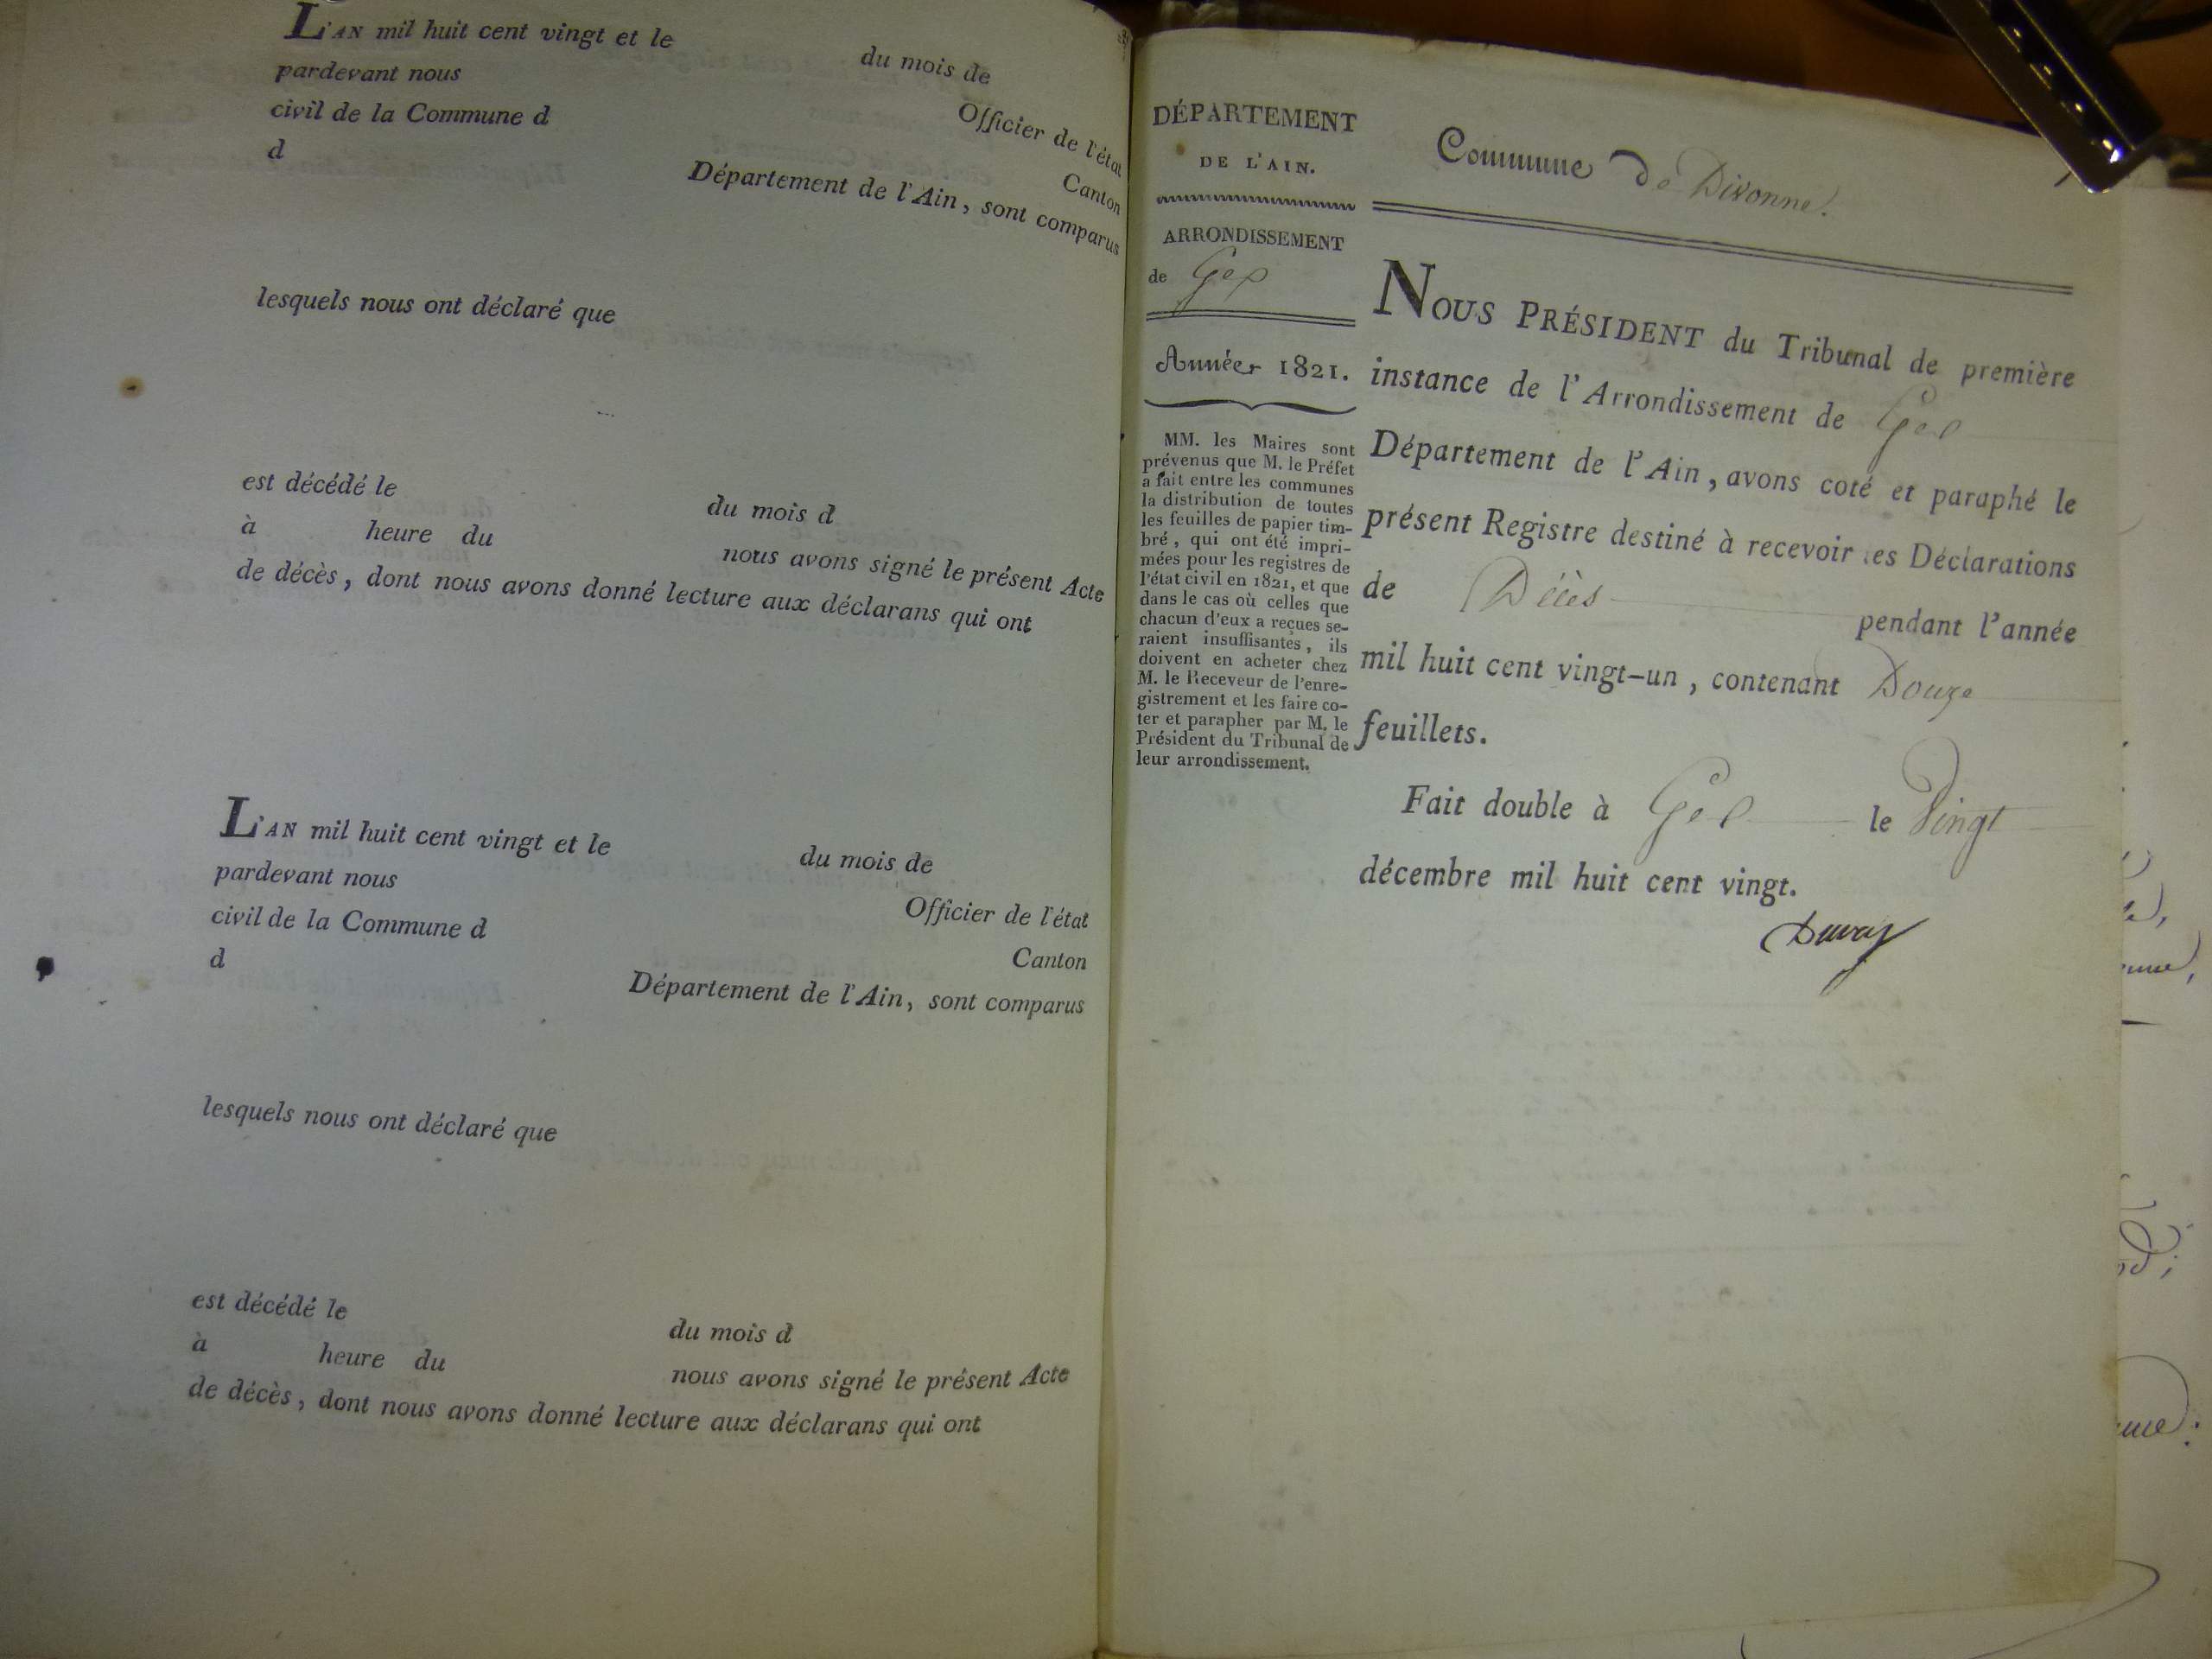 L'AN mil huit cent vingt et le du mois de
pardevant nous Officier de l'état
civil de la Commune d Canton
d Département de l'Ain, sont comparus
lesquels nous ont déclaré que
est décédé le du mois d
à heure du nous avons signé le présent Acte
de décès, dont nous avons donné lecture aux déclarans qui ont
L'AN mil huit cent vingt et le du mois de
pardevant nous Officier de l'état
civil de la Commune d Canton
d Département de l'Ain, sont comparus
lesquels nous ont déclaré que
est décédé le du mois d
à heure du nous avons signé le présent Acte
de décès, dont nous avons donné lecture aux déclarans qui ont
DÉPARTEMENT
DE L'AIN.
ARRONDISSEMENT
de Gex
Année 1821.
MM. les Maires sont
prévenus que M. le Préfet
a fait entre les communes
la distribution de toutes
les feuilles de papier tim-
bré, qui ont été impri-
mées pour les registres de
l'état civil en 1821, et que
dans le cas où celles que
chacun d'eux a reçues se-
raient insuffisantes, ils
doivent en acheter chez
M. le Receveur de l'enre-
gistrement et les faire co-
ter et parapher par M. le
Président du Tribunal de
leur arrondissement.
Commune de Divonne.
NOUS PRÉSIDENT du Tribunal de première
instance de l'Arrondissement de Gex
Département de l'Ain, avons coté et paraphé le
présent Registre destiné à recevoir les Déclarations
de Décès pendant l'année
mil huit cent vingt-un, contenant Douze
feuillets.
Fait double à Gex le Vingt
décembre mil huit cent vingt.